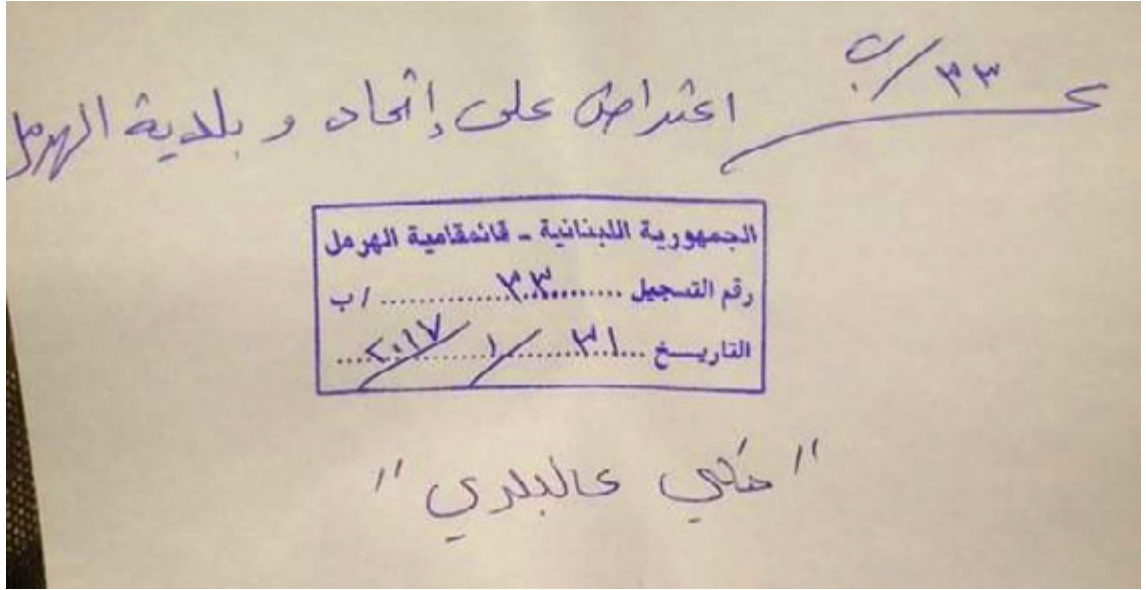 ٣٣/ب اعتراض على إتحاد و بلدية الهرمل
الجمهورية اللبنانية - قائمقامية الهرمل
رقم التسجيل ........٣٣............ /ب
التاريـــخ ....٣١..../....١..../....٢٠١٧....
"حكي عالبلدي"